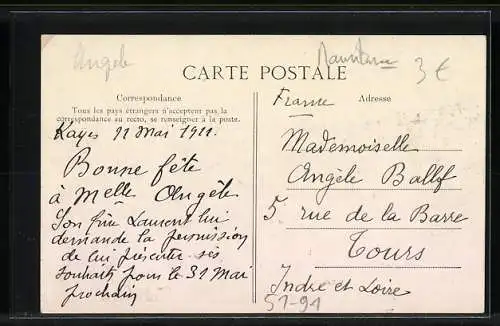 Angele
Mauritanie
3€
CARTE POSTALE
Correspondance
Tous les pays étrangers n'acceptent pas la
correspondance au recto, se renseigner à la poste.
Kayes 22 Mai 1911.
Bonne fête
à Melle Angèle
Son frère Laurent lui
demande la permission
de lui présenter ses
souhaits pour le 31 Mai
prochain
France
Adresse
Mademoiselle
Angèle
5 rue de la Barre
Tours
Indre et Loire
51-91